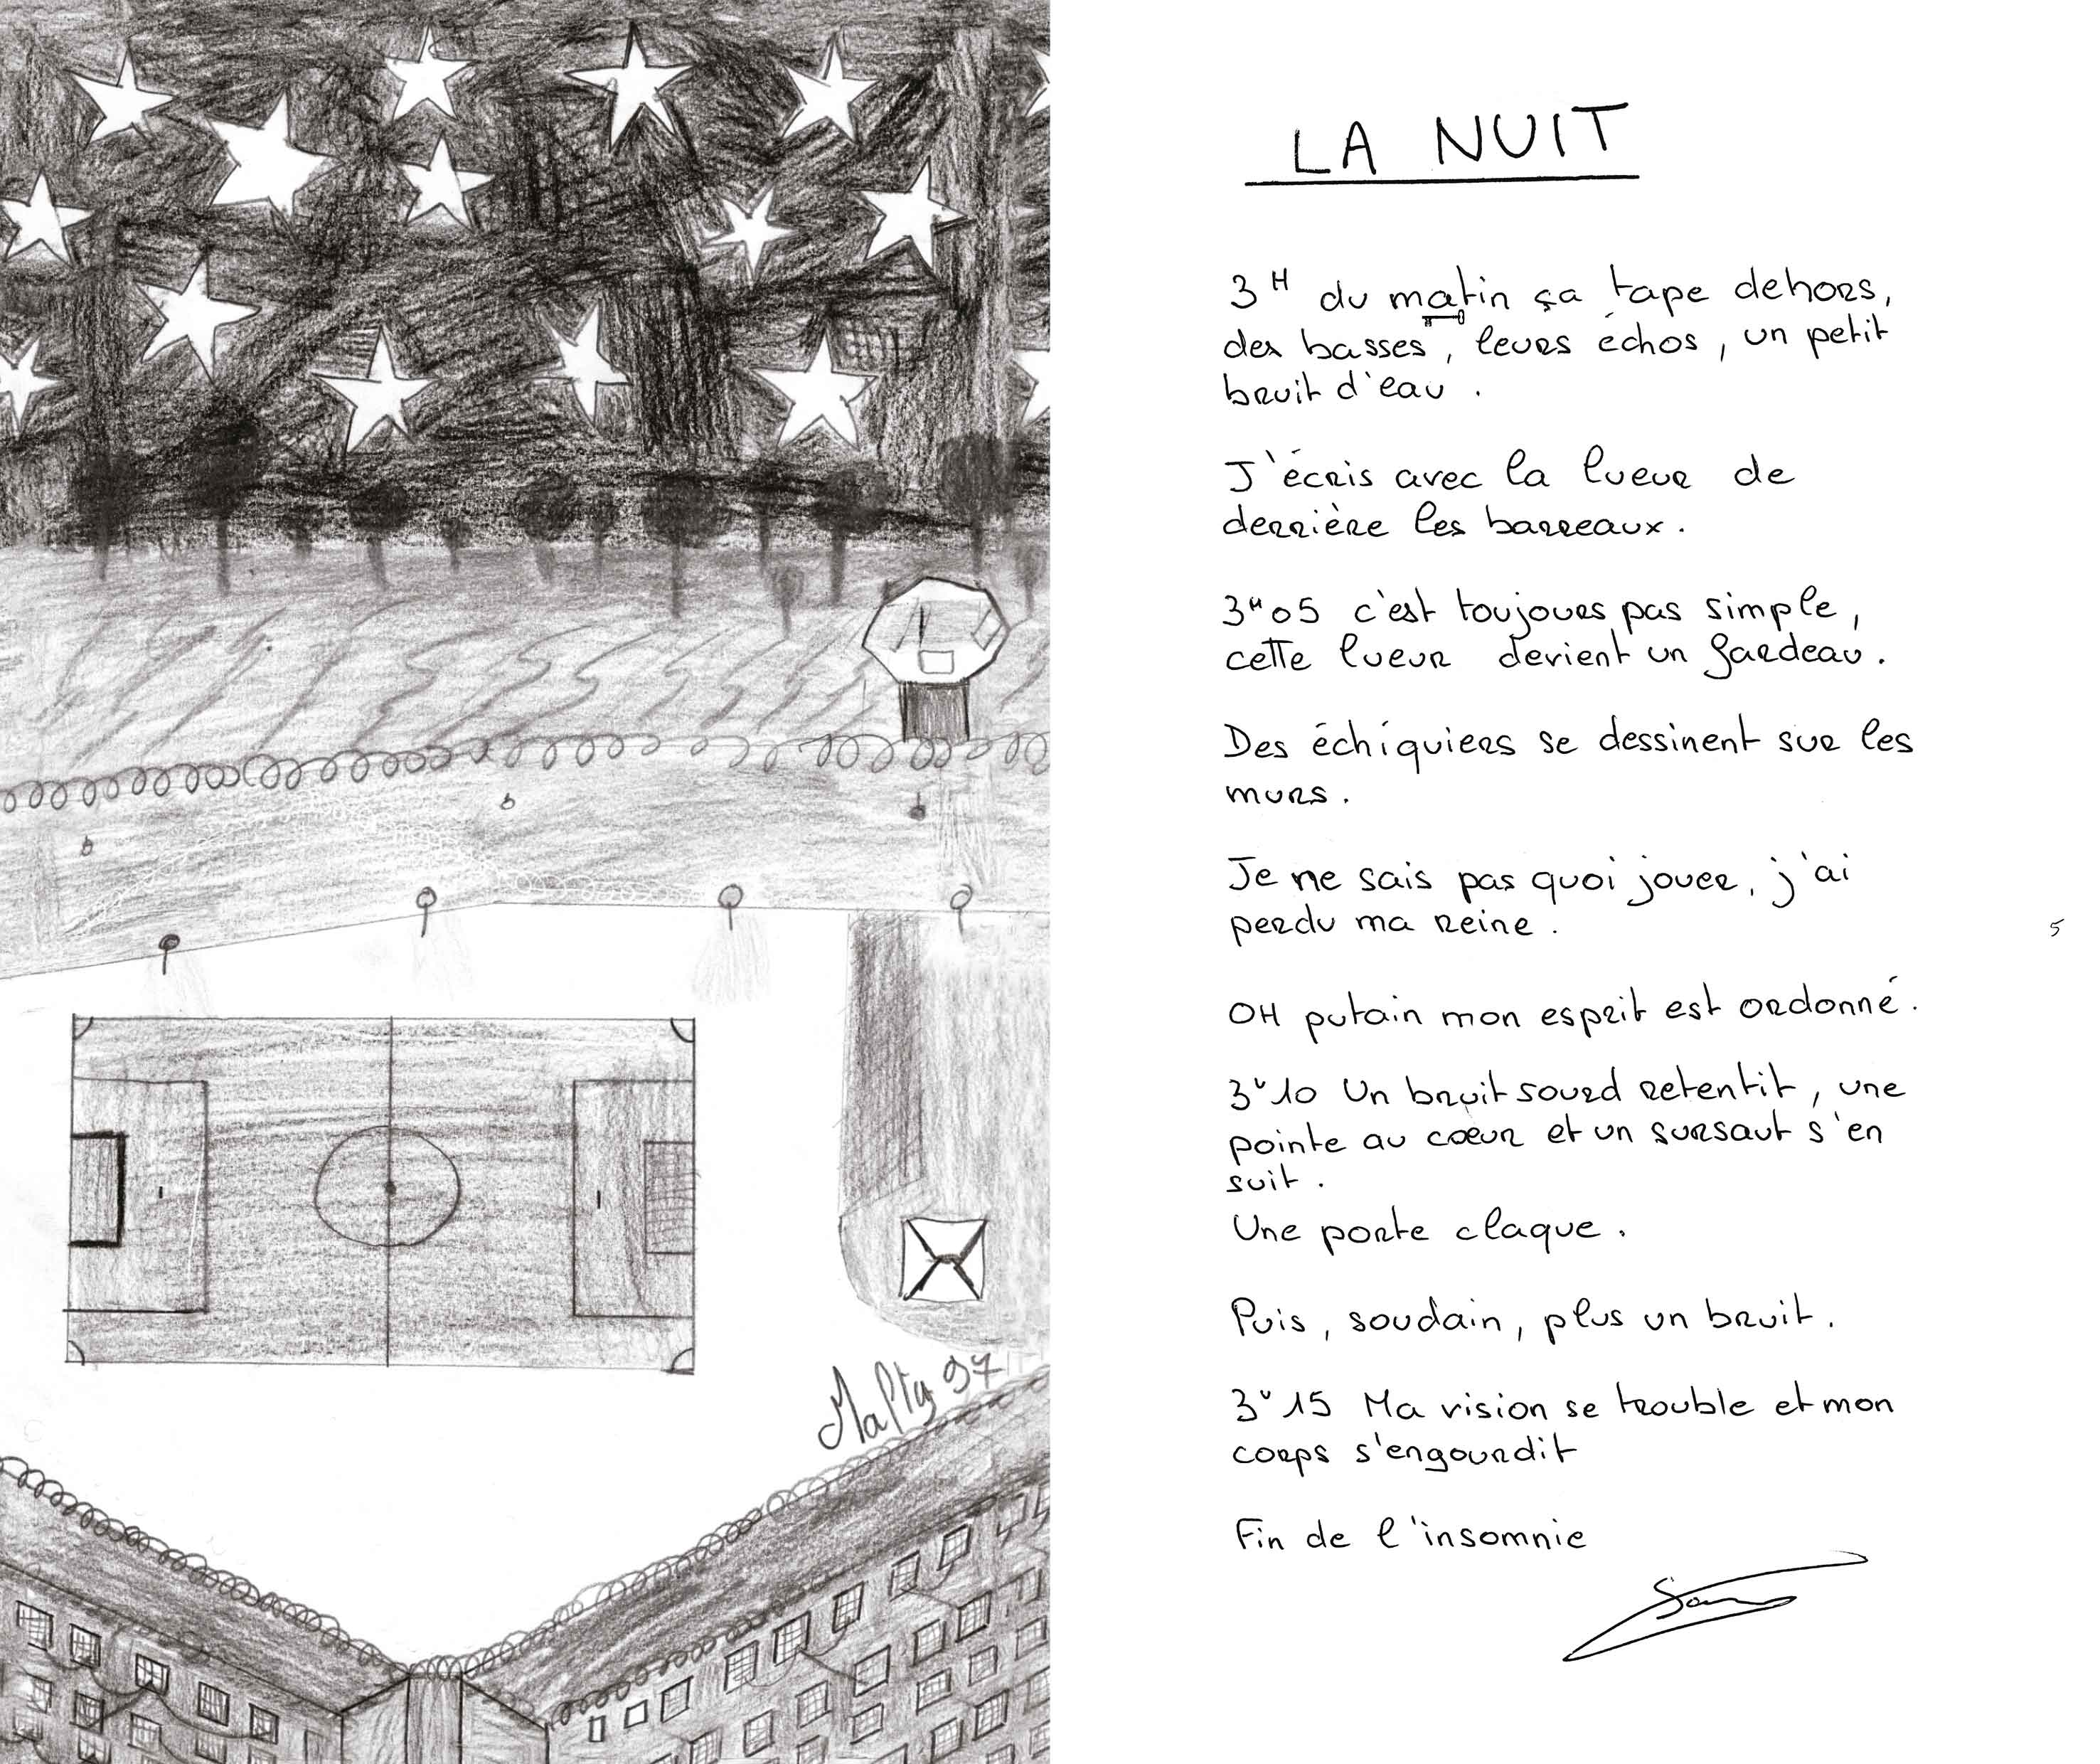 Malty 97
LA NUIT
3H du matin ça tape dehors,
des basses, leurs échos, un petit
bruit d'eau.
J'écris avec la lueur de
derrière les barreaux.
3H05 c'est toujours pas simple,
cette lueur devient un fardeau.
Des échiquiers se dessinent sur les
murs.
Je ne sais pas quoi jouer, j'ai
perdu ma reine.
OH putain mon esprit est ordonné.
3H10 Un bruit sourd retentit, une
pointe au coeur et un sursaut s'en
suit.
Une porte claque.
Puis, soudain, plus un bruit.
3H15 Ma vision se trouble et mon
corps s'engourdit
Fin de l'insomnie
5